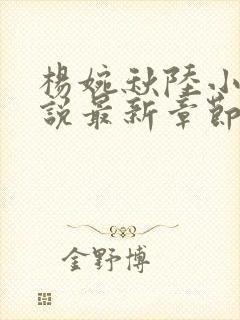 楊婉秋陸小
說最新章節
金野博